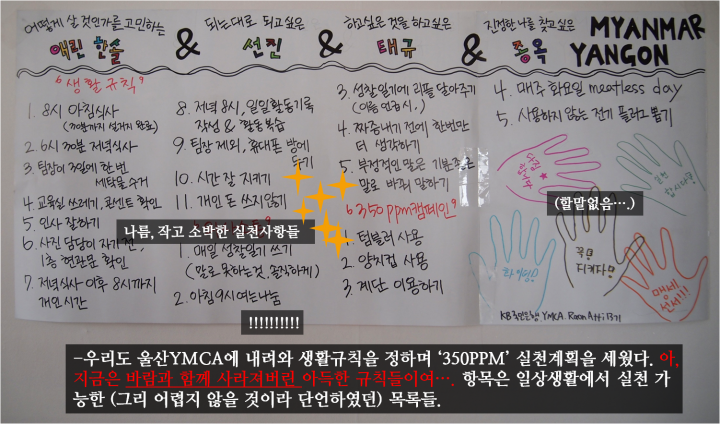 어떻게 살 것인가를 고민하는
애린 한슬
&
되는대로 되고싶은
선진
&
하고싶은 것을 하고싶은
태규
&
진정한 나를 찾고싶은
종옥
MYANMAR
YANGON
"생활규칙"
1. 8시 아침식사
(30분까지 설거지 완료)
2. 6시 30분 저녁식사
3. 팀장이 3일에 한 번
세탁물 수거
4. 교육실 쓰레기, 콘센트 확인
5. 인사 잘하기
6. 사진 담당이 자기 전,
1층 현관문 확인
7. 저녁식사 이후 8시까지
개인시간
8. 저녁 8시, 일일활동기록
작성 & 활동복습
9. 팀장 제외, 휴대폰 방에
두기
10. 시간 잘 지키기
11. 개인 돈 쓰지않기
1. 매일 성찰일기 쓰기
(말로 못하는것, 솔직하게)
2. 아침 9시 여는나눔
3. 성찰일기에 리플 달아주기
4. 짜증내기 전에 한번만
더 생각하기
5. 부정적인 말은 기분좋은
말로 바꿔 말하기
"350ppm캠페인"
1. 텀블러 사용
2. 양치컵 사용
3. 계단 이용하기
4. 매주 화요일 meatless day
5. 사용하지 않는 전기 플러그 뽑기
꼭!
지키다!
맹세
선서!!!
KB국민은행 YMCA. Raon Atti 13기
나름, 작고 소박한 실천사항들
(할말없음….)
!!!!!!!!!!
-우리도 울산YMCA에 내려와 생활규칙을 정하며 ‘350PPM’ 실천계획을 세웠다. 아,
지금은 바람과 함께 사라져버린 아득한 규칙들이여…. 항목은 일상생활에서 실천 가
능한 (그리 어렵지 않을 것이라 단언하였던) 목록들.